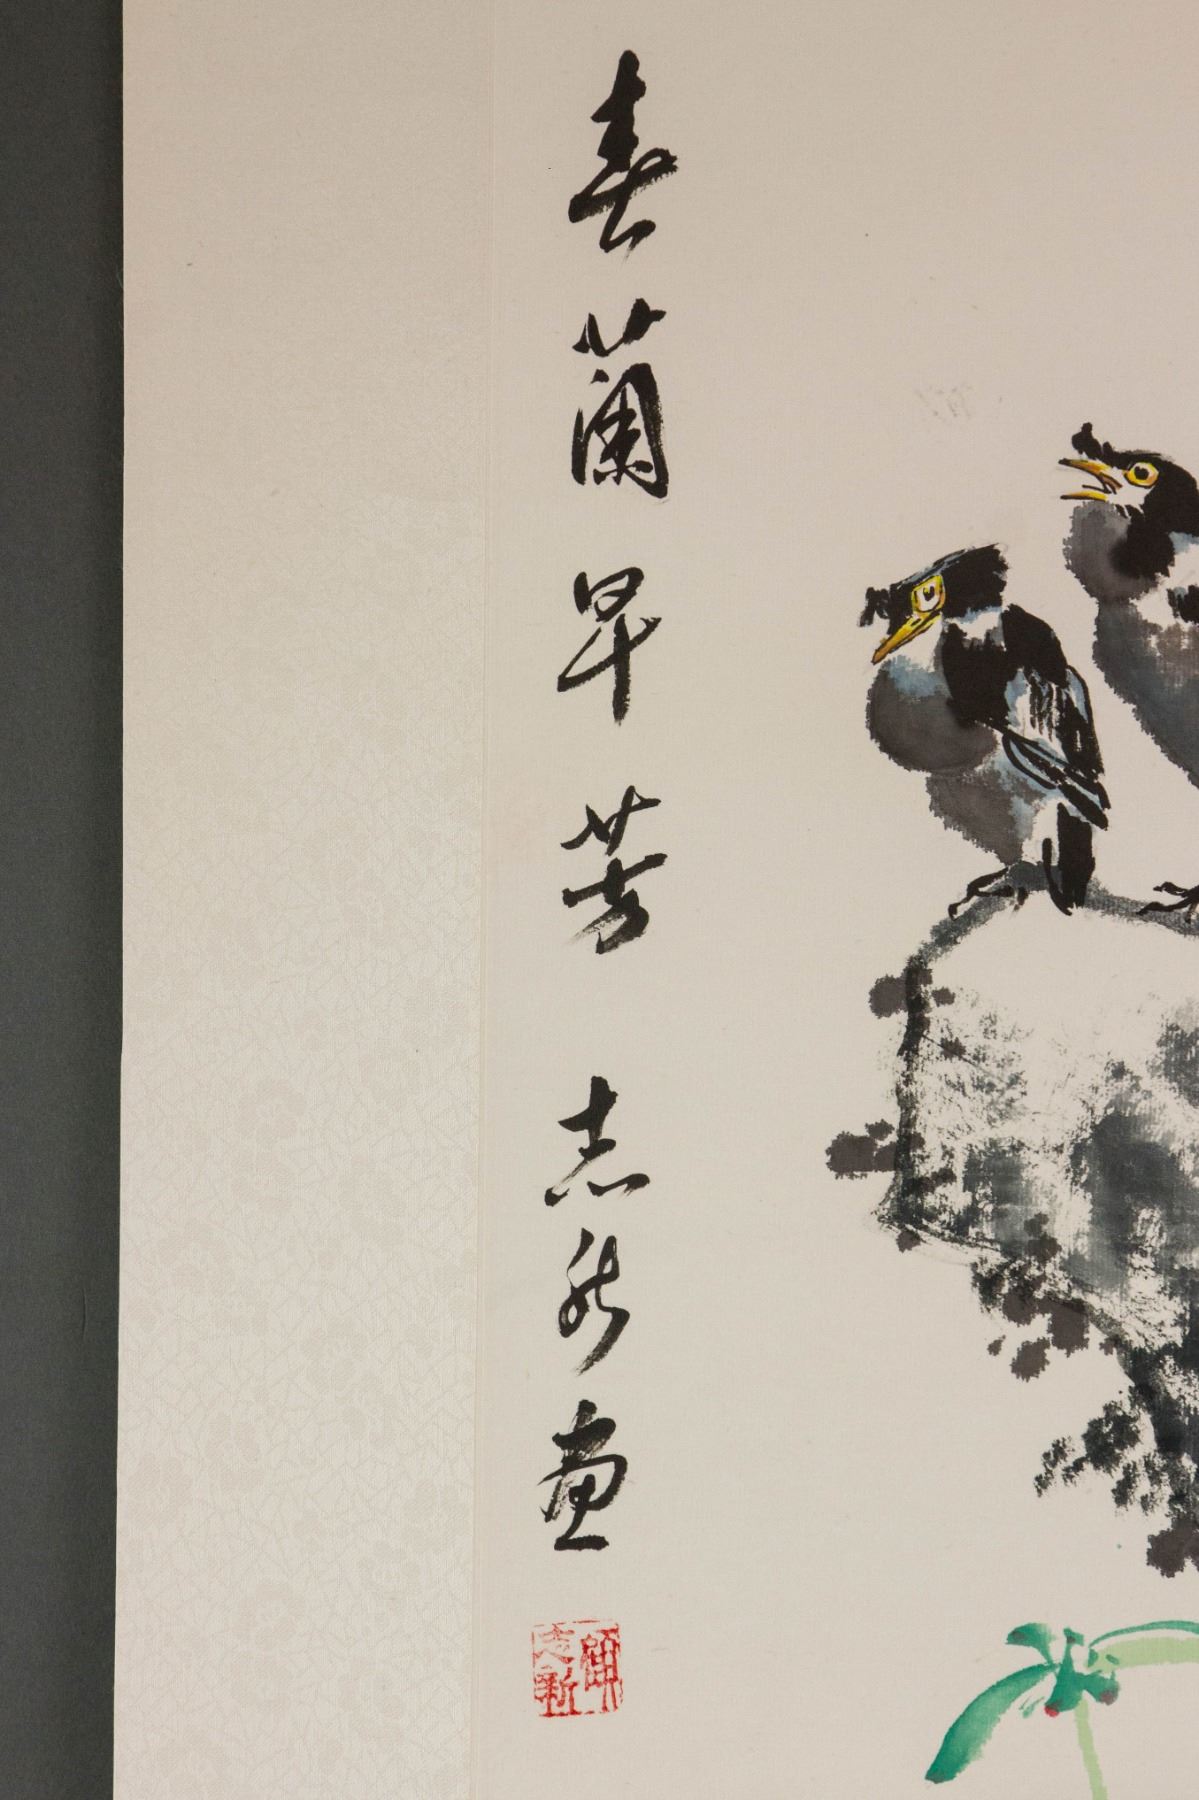 春蘭早芳 志新畫